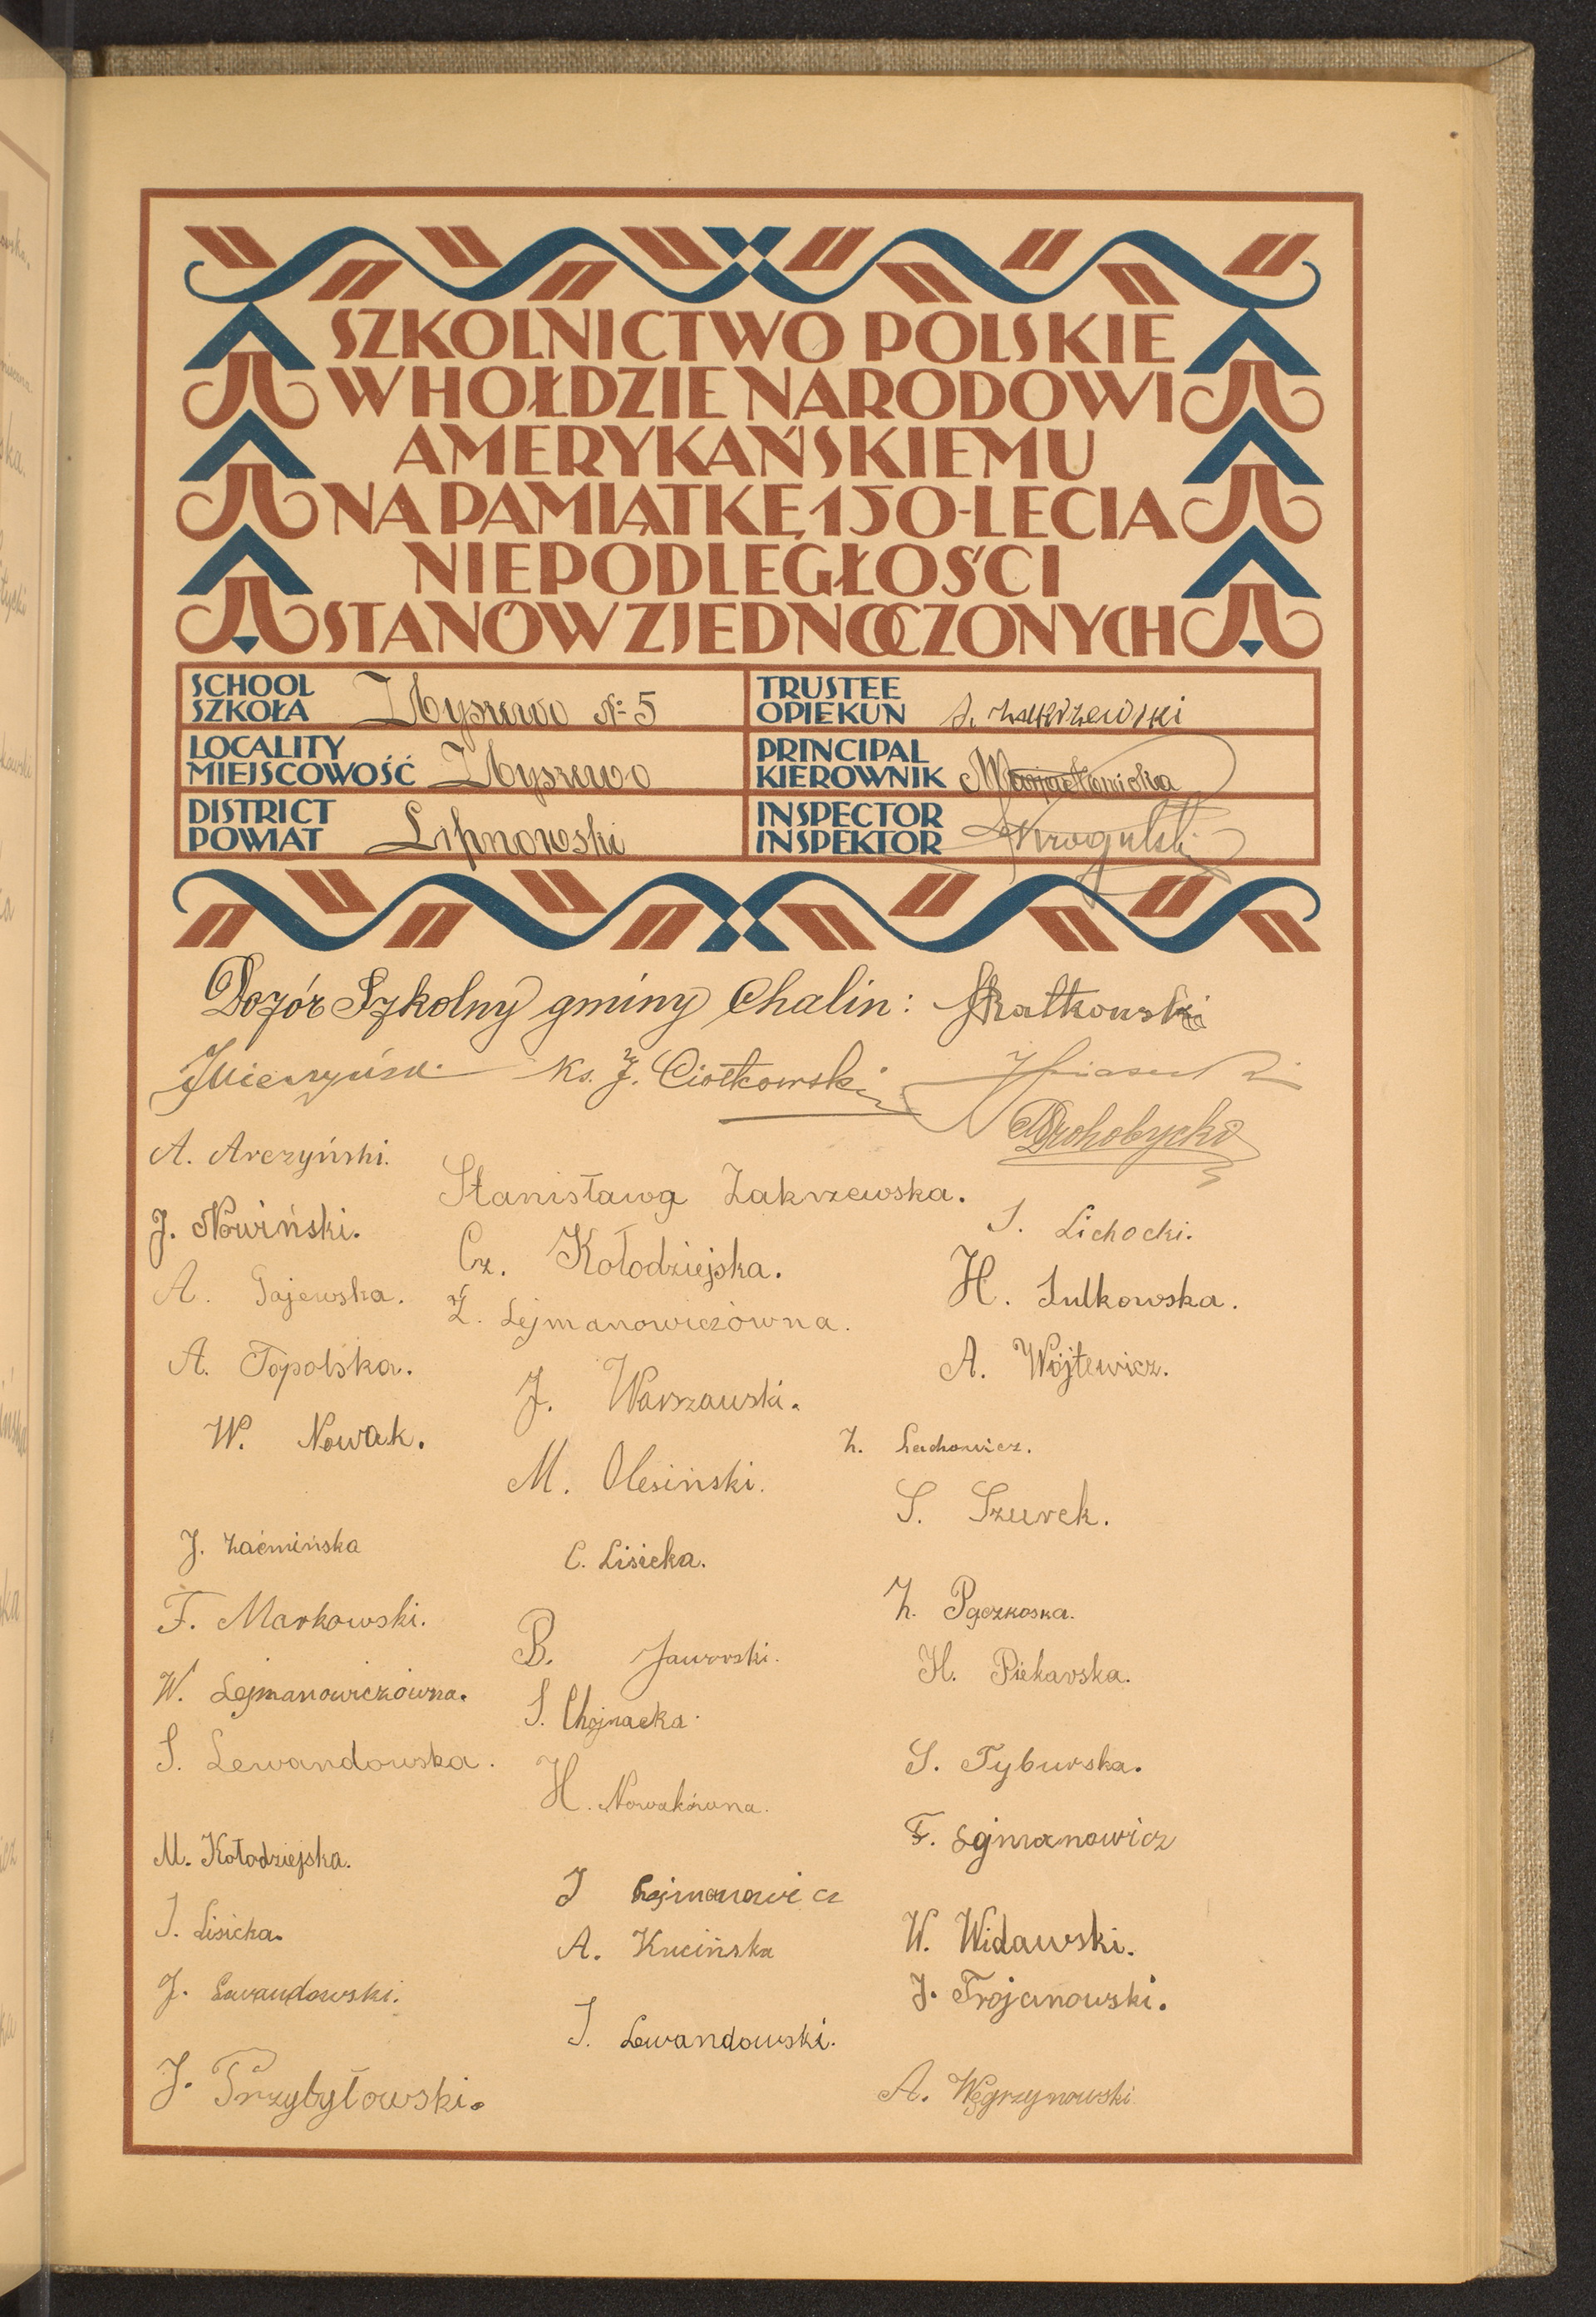 SZKOLNICTWO POLSKIE
W HOŁDZIE NARODOWI
AMERYKAŃSKIEMU
NA PAMIĄTKĘ 150-LECIA
NIEPODLEGŁOŚCI
STANÓW ZJEDNOCZONYCH
SCHOOL
SZKOŁA № 5
TRUSTEE
OPIEKUN S. Zakrzewski
LOCALITY
MIEJSCOWOŚĆ
PRINCIPAL
KIEROWNIK
DISTRICT
POWIAT Lipnowski
INSPECTOR
INSPEKTOR
Dozór Szkolny gminy Chalin:
Ks. J. Ciołkowski
Drohobycki
A. Arczyński.
Stanisława Zakrzewska.
J. Nowiński.
S. Lichocki.
Cz. Kołodziejska.
A. Gajewska.
H. Sulkowska.
Z. Lejmanowiczówna.
A. Topolska.
A. Wójtewicz.
J. Warszawski.
W. Nowak.
Z. Lachowicz.
M. Olesiński.
S. Szurek.
J. Zaćmińska
C. Lisicka.
F. Markowski.
Z. Pączkoska.
B. Jaworski.
H. Piekarska.
W. Lejmanowiczówna.
S. Chojnacka.
S. Lewandowska.
S. Tyburska.
H. Nowakówna.
F. Lejmanowicz
M. Kołodziejska.
J Lejmanowicz
J. Lisicka.
W. Widawski.
A. Kucińska
J. Lewandowski.
J. Trojanowski.
J. Lewandowski.
J. Przybyłowski.
A. Węgrzynowski